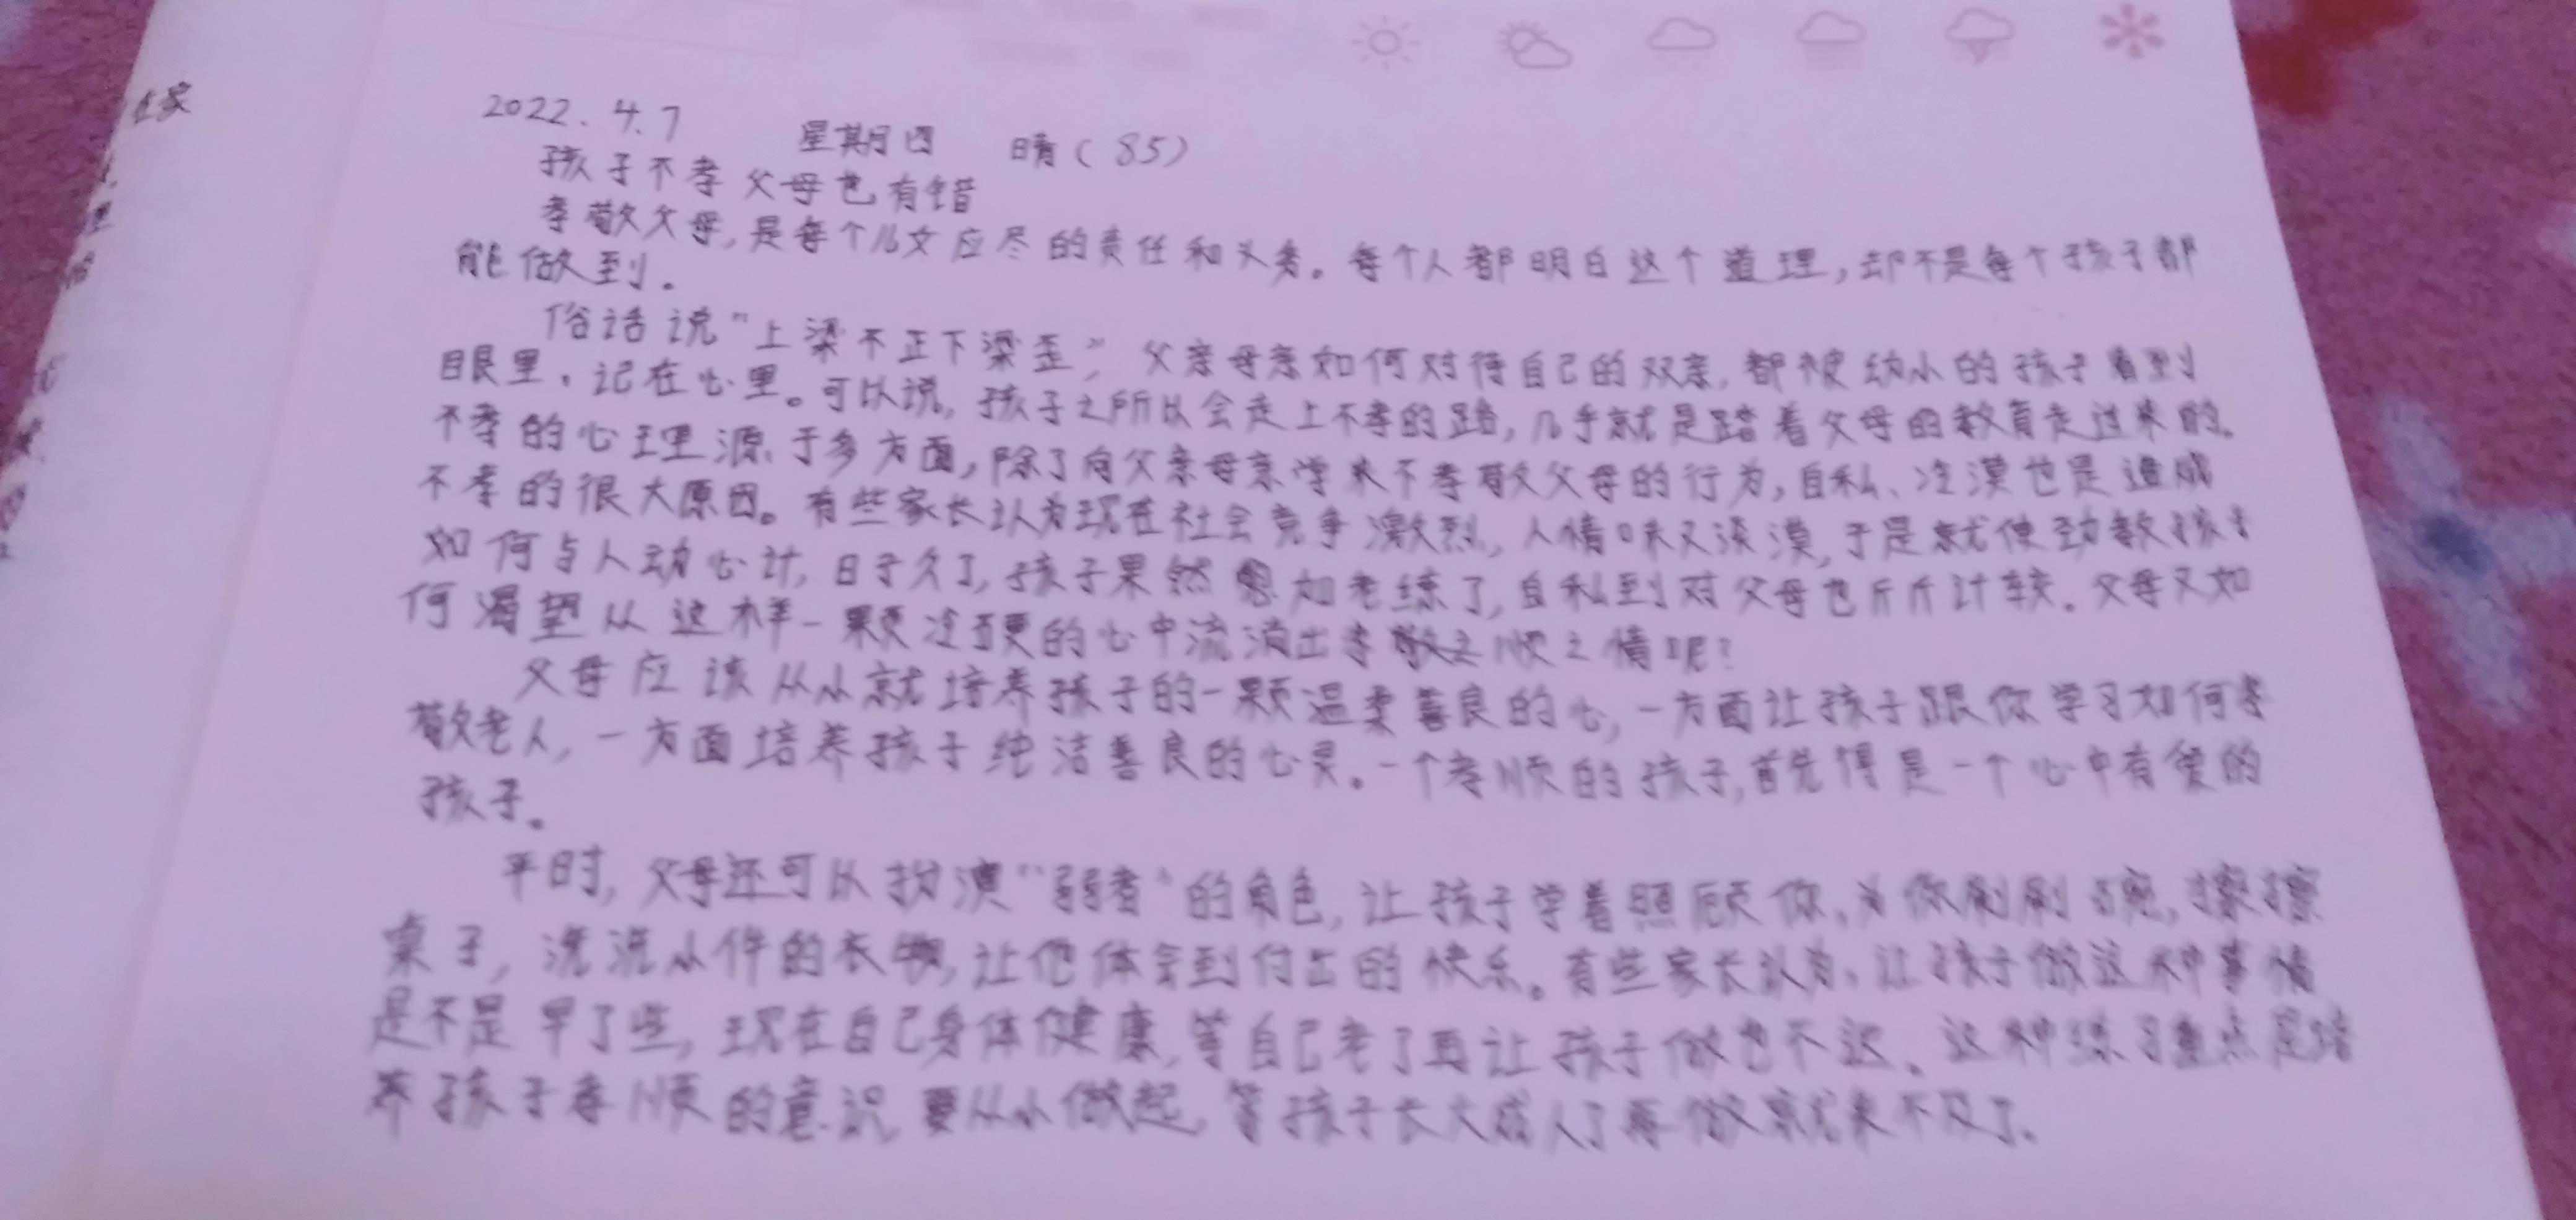 2022.4.7 星期四 晴(85)
孩子不孝父母也有错
孝敬父母,是每个儿女应尽的责任和义务。每个人都明白这个道理,却不是每个孩子都
能做到。
俗话说“上梁不正下梁歪”,父亲母亲如何对待自己的双亲,都被幼小的孩子看到
眼里,记在心里。可以说,孩子之所以会走上不孝的路,几乎就是踏着父母的教育走过来的。
不孝的心理源于多方面,除了向父亲母亲学来不孝敬父母的行为,自私、冷漠也是造成
不孝的很大原因。有些家长认为现在社会竞争激烈,人情味又淡漠,于是就使劲教孩子
如何与人动心计,日子久了,孩子果然愈加老练了,自私到对父母也斤斤计较。父母又如
何渴望从这样一颗冷硬的心中流淌出孝顺之情呢?
父母应该从小就培养孩子的一颗温柔善良的心,一方面让孩子跟你学习如何孝
敬老人,一方面培养孩子纯洁善良的心灵。一个孝顺的孩子,首先得是一个心中有爱的
孩子。
平时,父母还可以扮演“弱者”的角色,让孩子学着照顾你,为你刷刷碗,擦擦
桌子,洗洗小件的衣物,让他体会到付出的快乐。有些家长认为,让孩子做这种事情
是不是早了些,现在自己身体健康,等自己老了再让孩子做也不迟。这种练习重点是培
养孩子孝顺的意识,要从小做起,等孩子长大成人了再做就来不及了。
在家